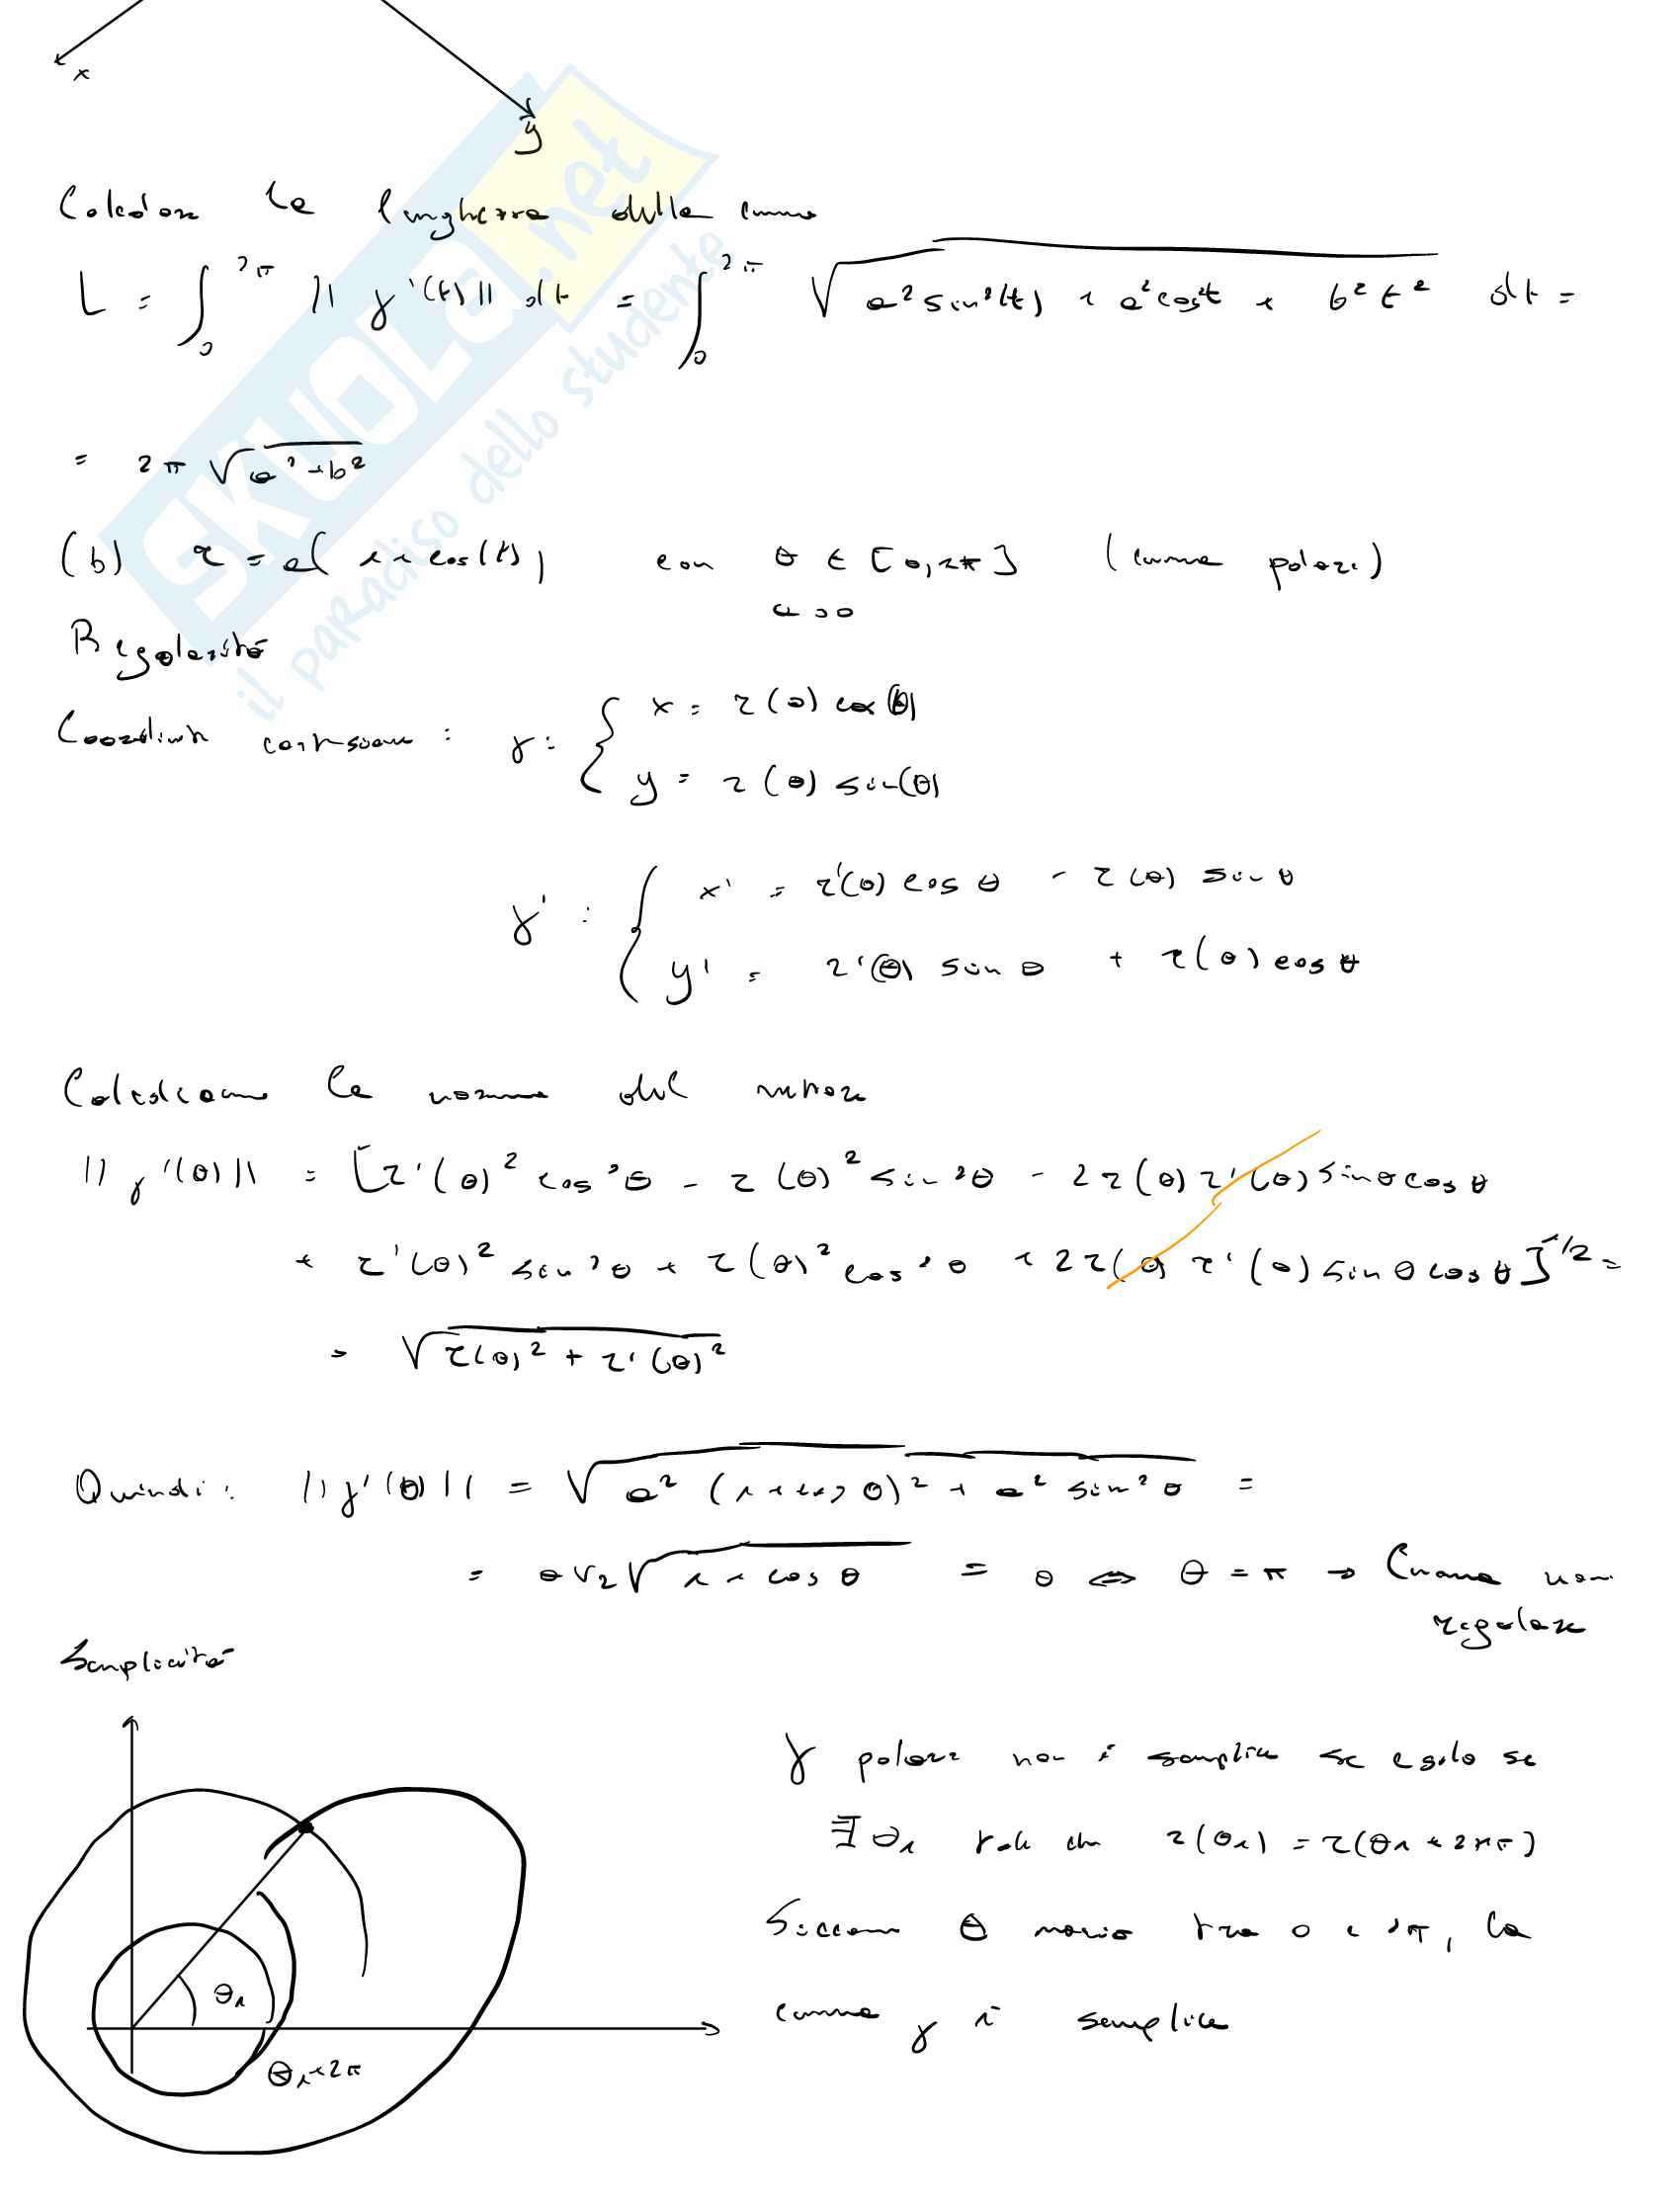 x
y
Calcolare la lunghezza della curva
L = ∫₀^2π || γ'(t) || dt = ∫₀^2π √(a² sin²(t) + a² cos²t + b² t²) dt =
= 2π √(a² + b²)
(b) r = a(1 + cos(t)) con θ ∈ [0, 2π] (curva polare)
a > 0
Regolarità
Coordinate cartesiane : γ: { x = r(θ) cos(θ)
y = r(θ) sin(θ)
γ' : { x' = r'(θ) cos θ - r(θ) sin θ
y' = r'(θ) sin θ + r(θ) cos θ
Calcoliamo la norma del vettore
|| γ'(θ) || = [r'(θ)² cos²θ - r(θ)² sin²θ - 2r(θ) r'(θ) sin θ cos θ
+ r'(θ)² sin²θ + r(θ)² cos²θ + 2r(θ) r'(θ) sin θ cos θ]^1/2 =
= √(r(θ)² + r'(θ)²)
Quindi: || γ'(θ) || = √(a² (1 + cos θ)² + a² sin²θ) =
= a√2 √(1 + cos θ) = 0 ⇔ θ = π → Curva non
regolare
Semplicità
γ polare non è semplice se e solo se
∃ θ₁ tale che r(θ₁) = r(θ₁ + 2nπ)
Siccome θ varia tra 0 e 2π, la
curva γ è semplice
θ₁
θ₁+2π
SKUOLa.net
il paradiso dello studente